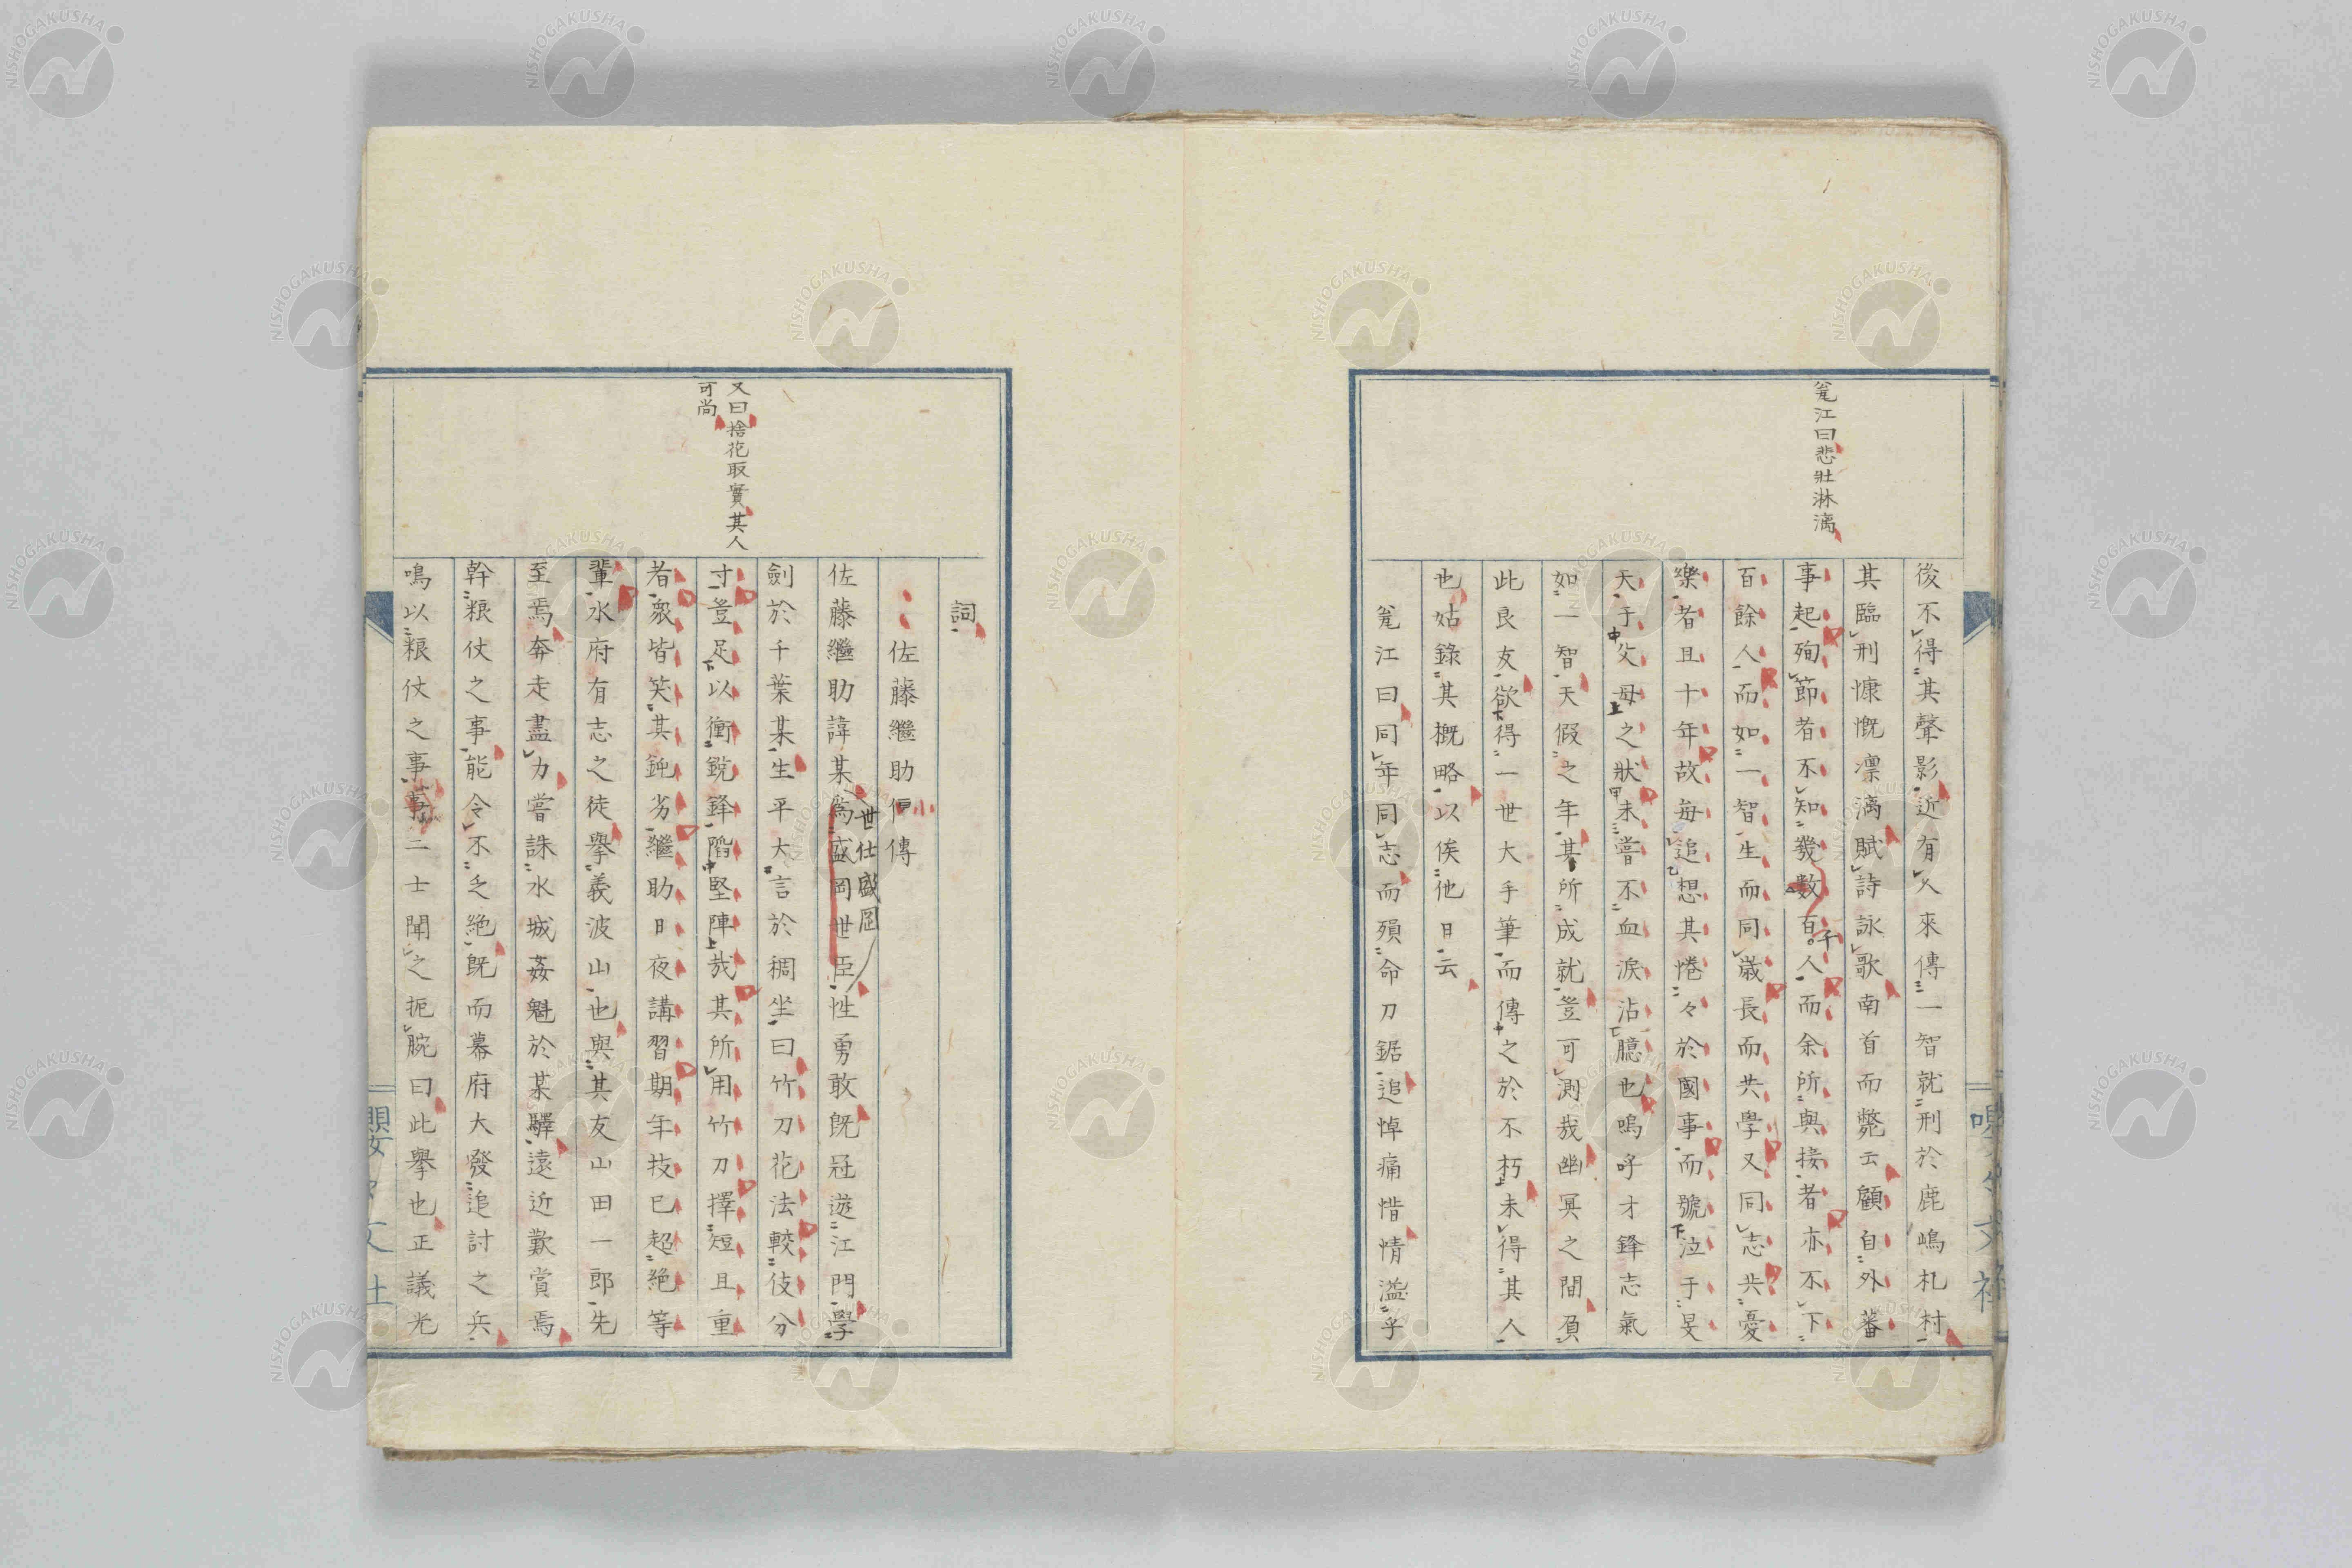 後不得其聲影近有人來傳一智就刑於鹿嶋札村
其臨刑慷慨凛漓賦詩詠歌南首而斃云顧自外蕃
事起殉節者不知幾數百人而余所與接者亦不下
千
百餘人而如一智生而同歳長而共學又同志共憂
樂者且十年故每追想其惓々於國事而號泣于旻
天于父母之狀未嘗不血淚沾臆也嗚呼才鋒志氣
如一智天假之年其所成就豈可測哉幽冥之間負
此良友欲得一世大手筆而傳之於不朽未得其人
也姑錄其概略以俟他日云
篭江曰同年同志而殞命刀鋸追悼痛惜情溢乎
篭江曰悲壯淋漓
詞
佐藤繼助伊傳
小
佐藤繼助諱某爲盛岡世臣性勇敢既冠遊江門學
世仕盛岡
劍於千葉某生平大言於稠坐曰竹刀花法較伎分
寸豈足以衝銳鋒陷堅陣哉其所用竹刀擇短且重
者衆皆笑其鈍劣繼助日夜講習期年技已超絕等
輩水府有志之徒擧義波山也與其友山田一郎先
至焉奔走盡力嘗誅水城姦魁於某驛遠近歎賞焉
幹粮仗之事能令不乏絕既而幕府大發追討之兵
鳴以粮仗之事事二士聞之扼腕曰此擧也正議光
又曰捨花取實其人
可尚